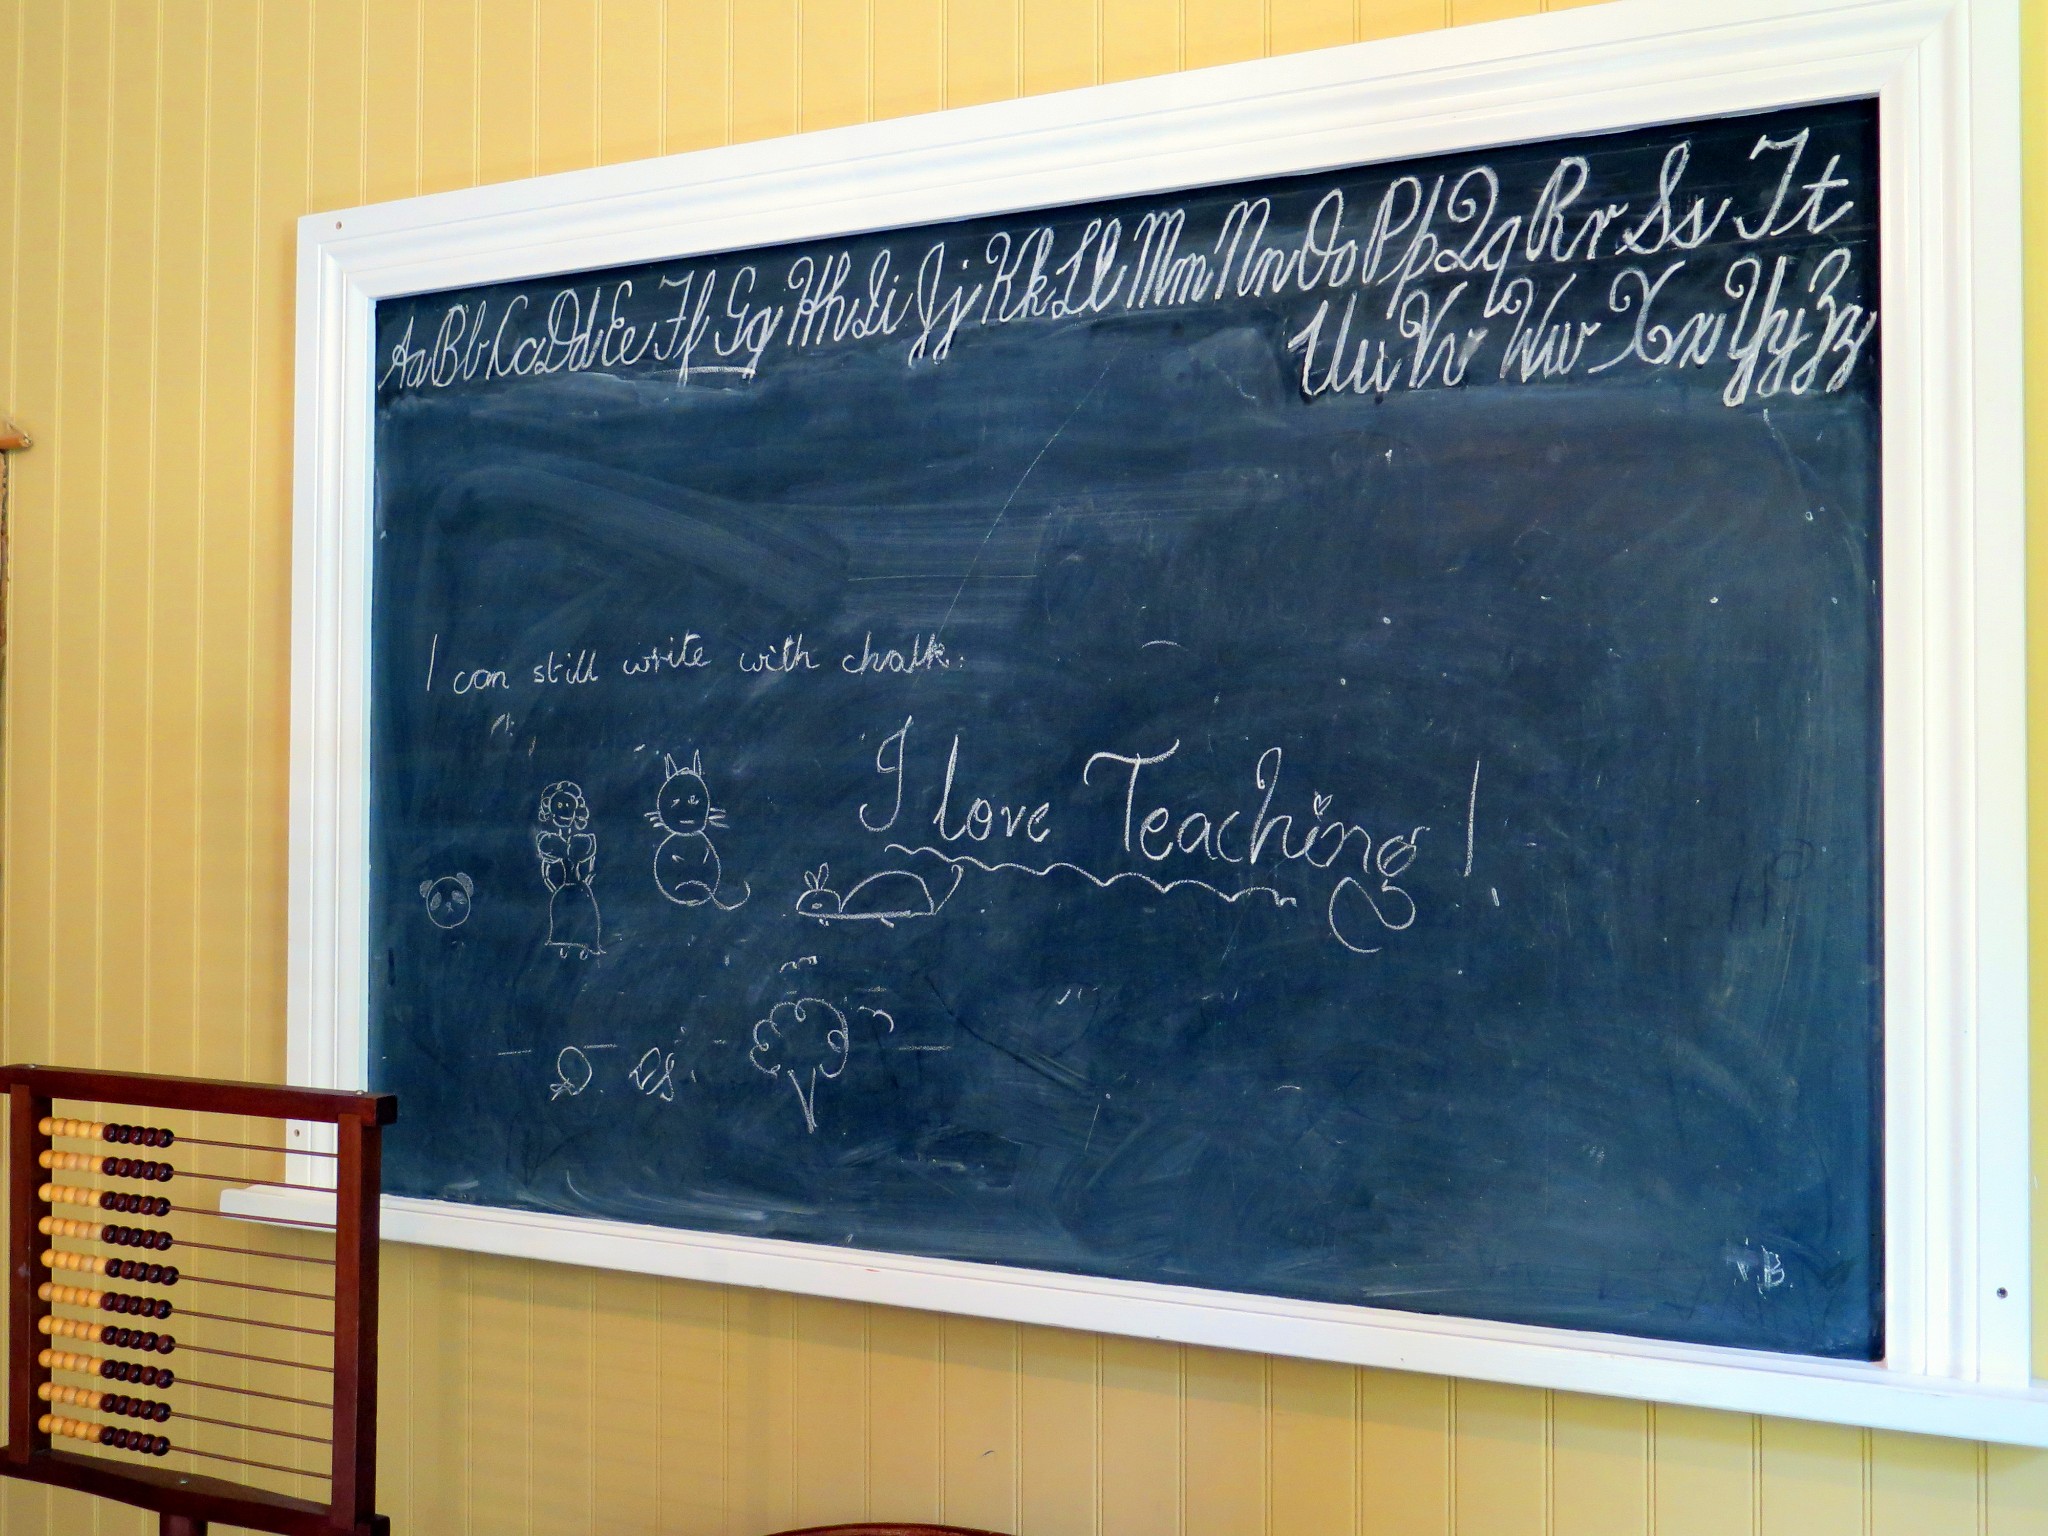 Aa Bb Cc Dd Ee Ff Gg Hh Ii Jj Kk Ll Mm Nn Oo Pp Qq Rr Ss Tt
Uu Vv Ww Xx Yy Zz
I can still write with chalk.
I love Teaching!
B